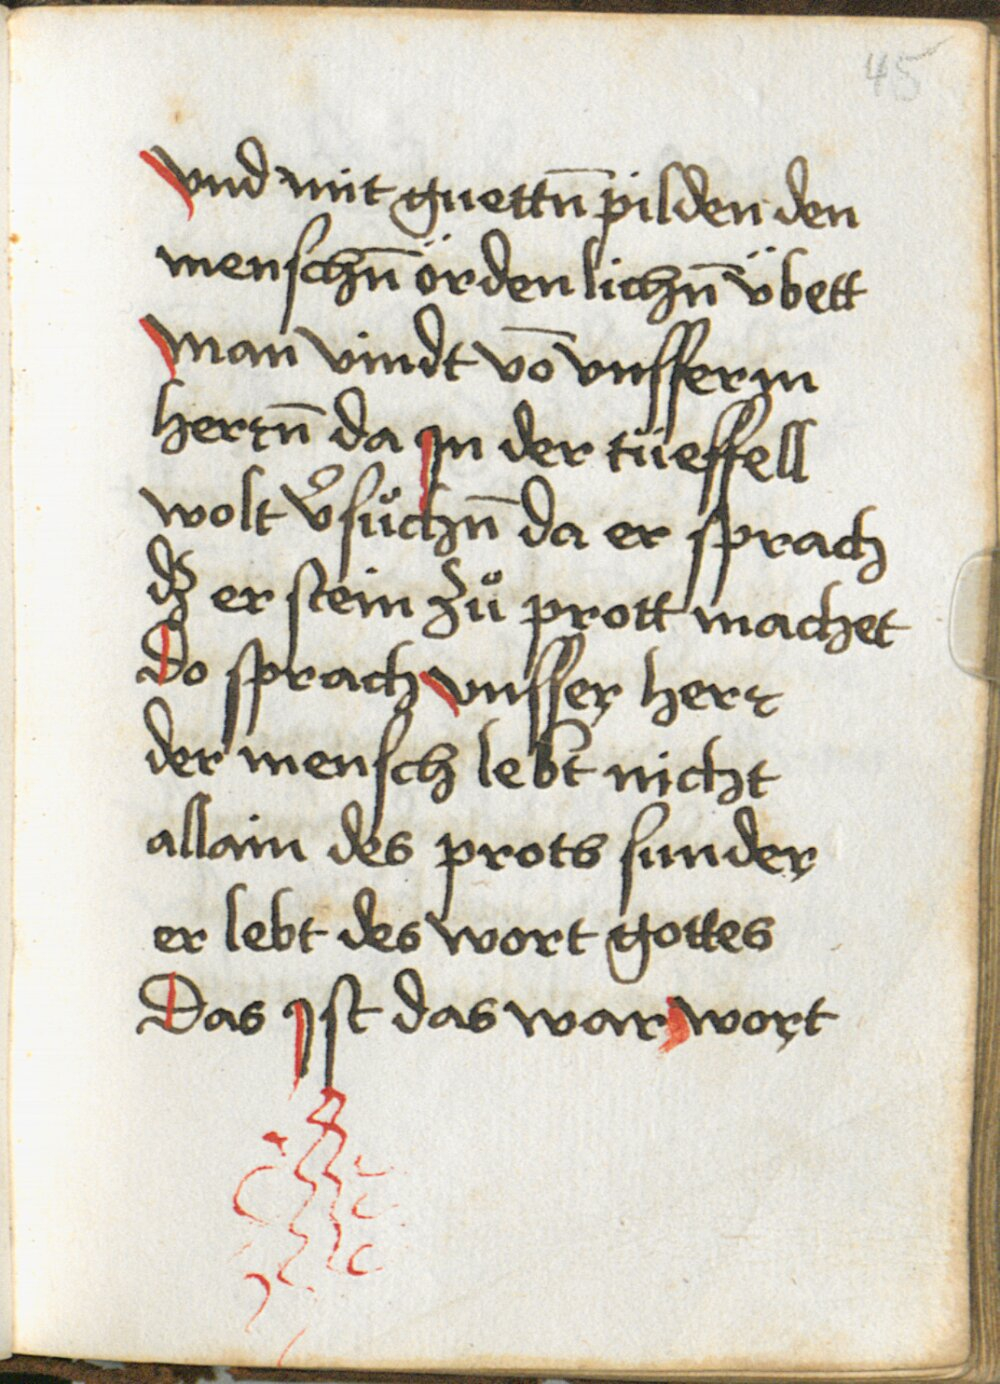 45
vnd mit guettn̄ pilden den
menschn̄ ördenlichn̄ v̈bett
Man vindt vō vnsserm
herrn̄ da Jn der tüeffell
wolt v̉sůchn̄ da er sprach
dz er stein zů prott machet
Do sprach vnsser herr
der mensch lebt nicht
allain des prots sunder
er lebt des wort gottes
Das Jst das war wort